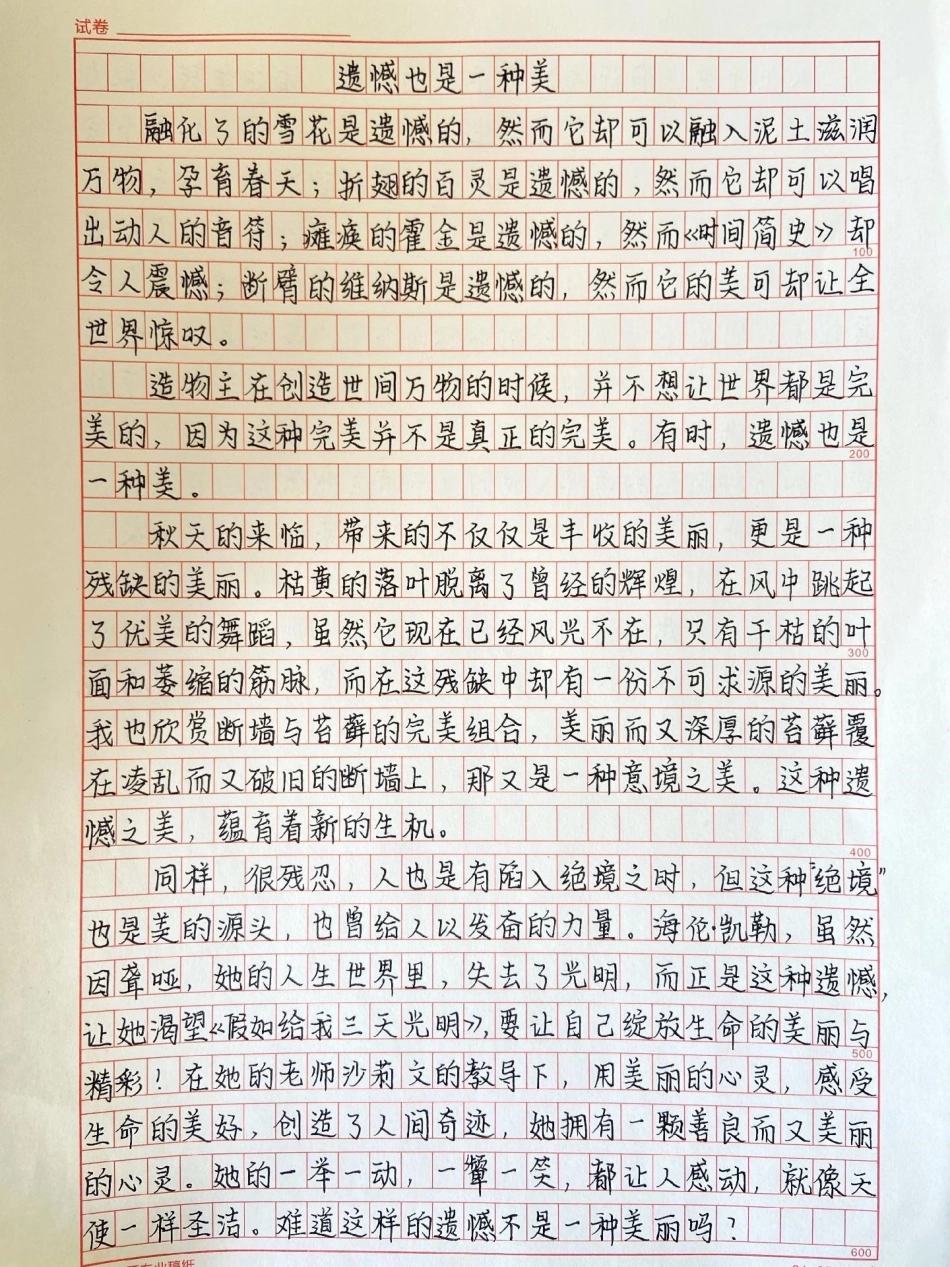 试卷
遗憾也是一种美
融化了的雪花是遗憾的，然而它却可以融入泥土滋润
万物，孕育春天；折翅的百灵是遗憾的，然而它却可以唱
出动人的音符；瘫痪的霍金是遗憾的，然而《时间简史》却
100
令人震憾；断臂的维纳斯是遗憾的，然而它的美可却让全
世界惊叹。
造物主在创造世间万物的时候，并不想让世界都是完
美的，因为这种完美并不是真正的完美。有时，遗憾也是
200
一种美。
秋天的来临，带来的不仅仅是丰收的美丽，更是一种
残缺的美丽。枯黄的落叶脱离了曾经的辉煌，在风中跳起
了优美的舞蹈，虽然它现在已经风光不在，只有干枯的叶
300
面和萎缩的筋脉，而在这残缺中却有一份不可求源的美丽。
我也欣赏断墙与苔藓的完美组合，美丽而又深厚的苔藓覆
在凌乱而又破旧的断墙上，那又是一种意境之美。这种遗
憾之美，蕴育着新的生机。
400
同样，很残忍，人也是有陷入绝境之时，但这种“绝境”
也是美的源头，也曾给人以发奋的力量。海伦·凯勒，虽然
因聋哑，她的人生世界里，失去了光明，而正是这种遗憾，
让她渴望《假如给我三天光明》，要让自己绽放生命的美丽与
500
精彩！在她的老师沙莉文的教导下，用美丽的心灵，感受
生命的美好，创造了人间奇迹，她拥有一颗善良而又美丽
的心灵。她的一举一动，一颦一笑，都让人感动，就像天
使一样圣洁。难道这样的遗憾不是一种美丽吗？
600